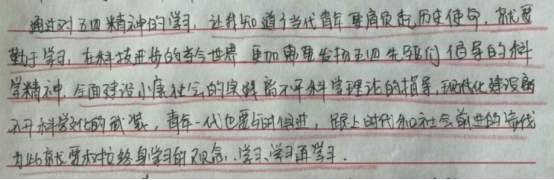 通过对五四精神的学习,让我知道了当代青年要肩负起历史使命,就要
勤于学习,在科技进步的当今世界,更加需要发扬五四先驱们倡导的科
学精神,全面建设小康社会的实践离不开科学理论的指导,现代化建设离
不开科学文化的武装,青年一代也要与时俱进,跟上时代和社会前进的步伐
为此就要树立终身学习的观念,学习、学习再学习.